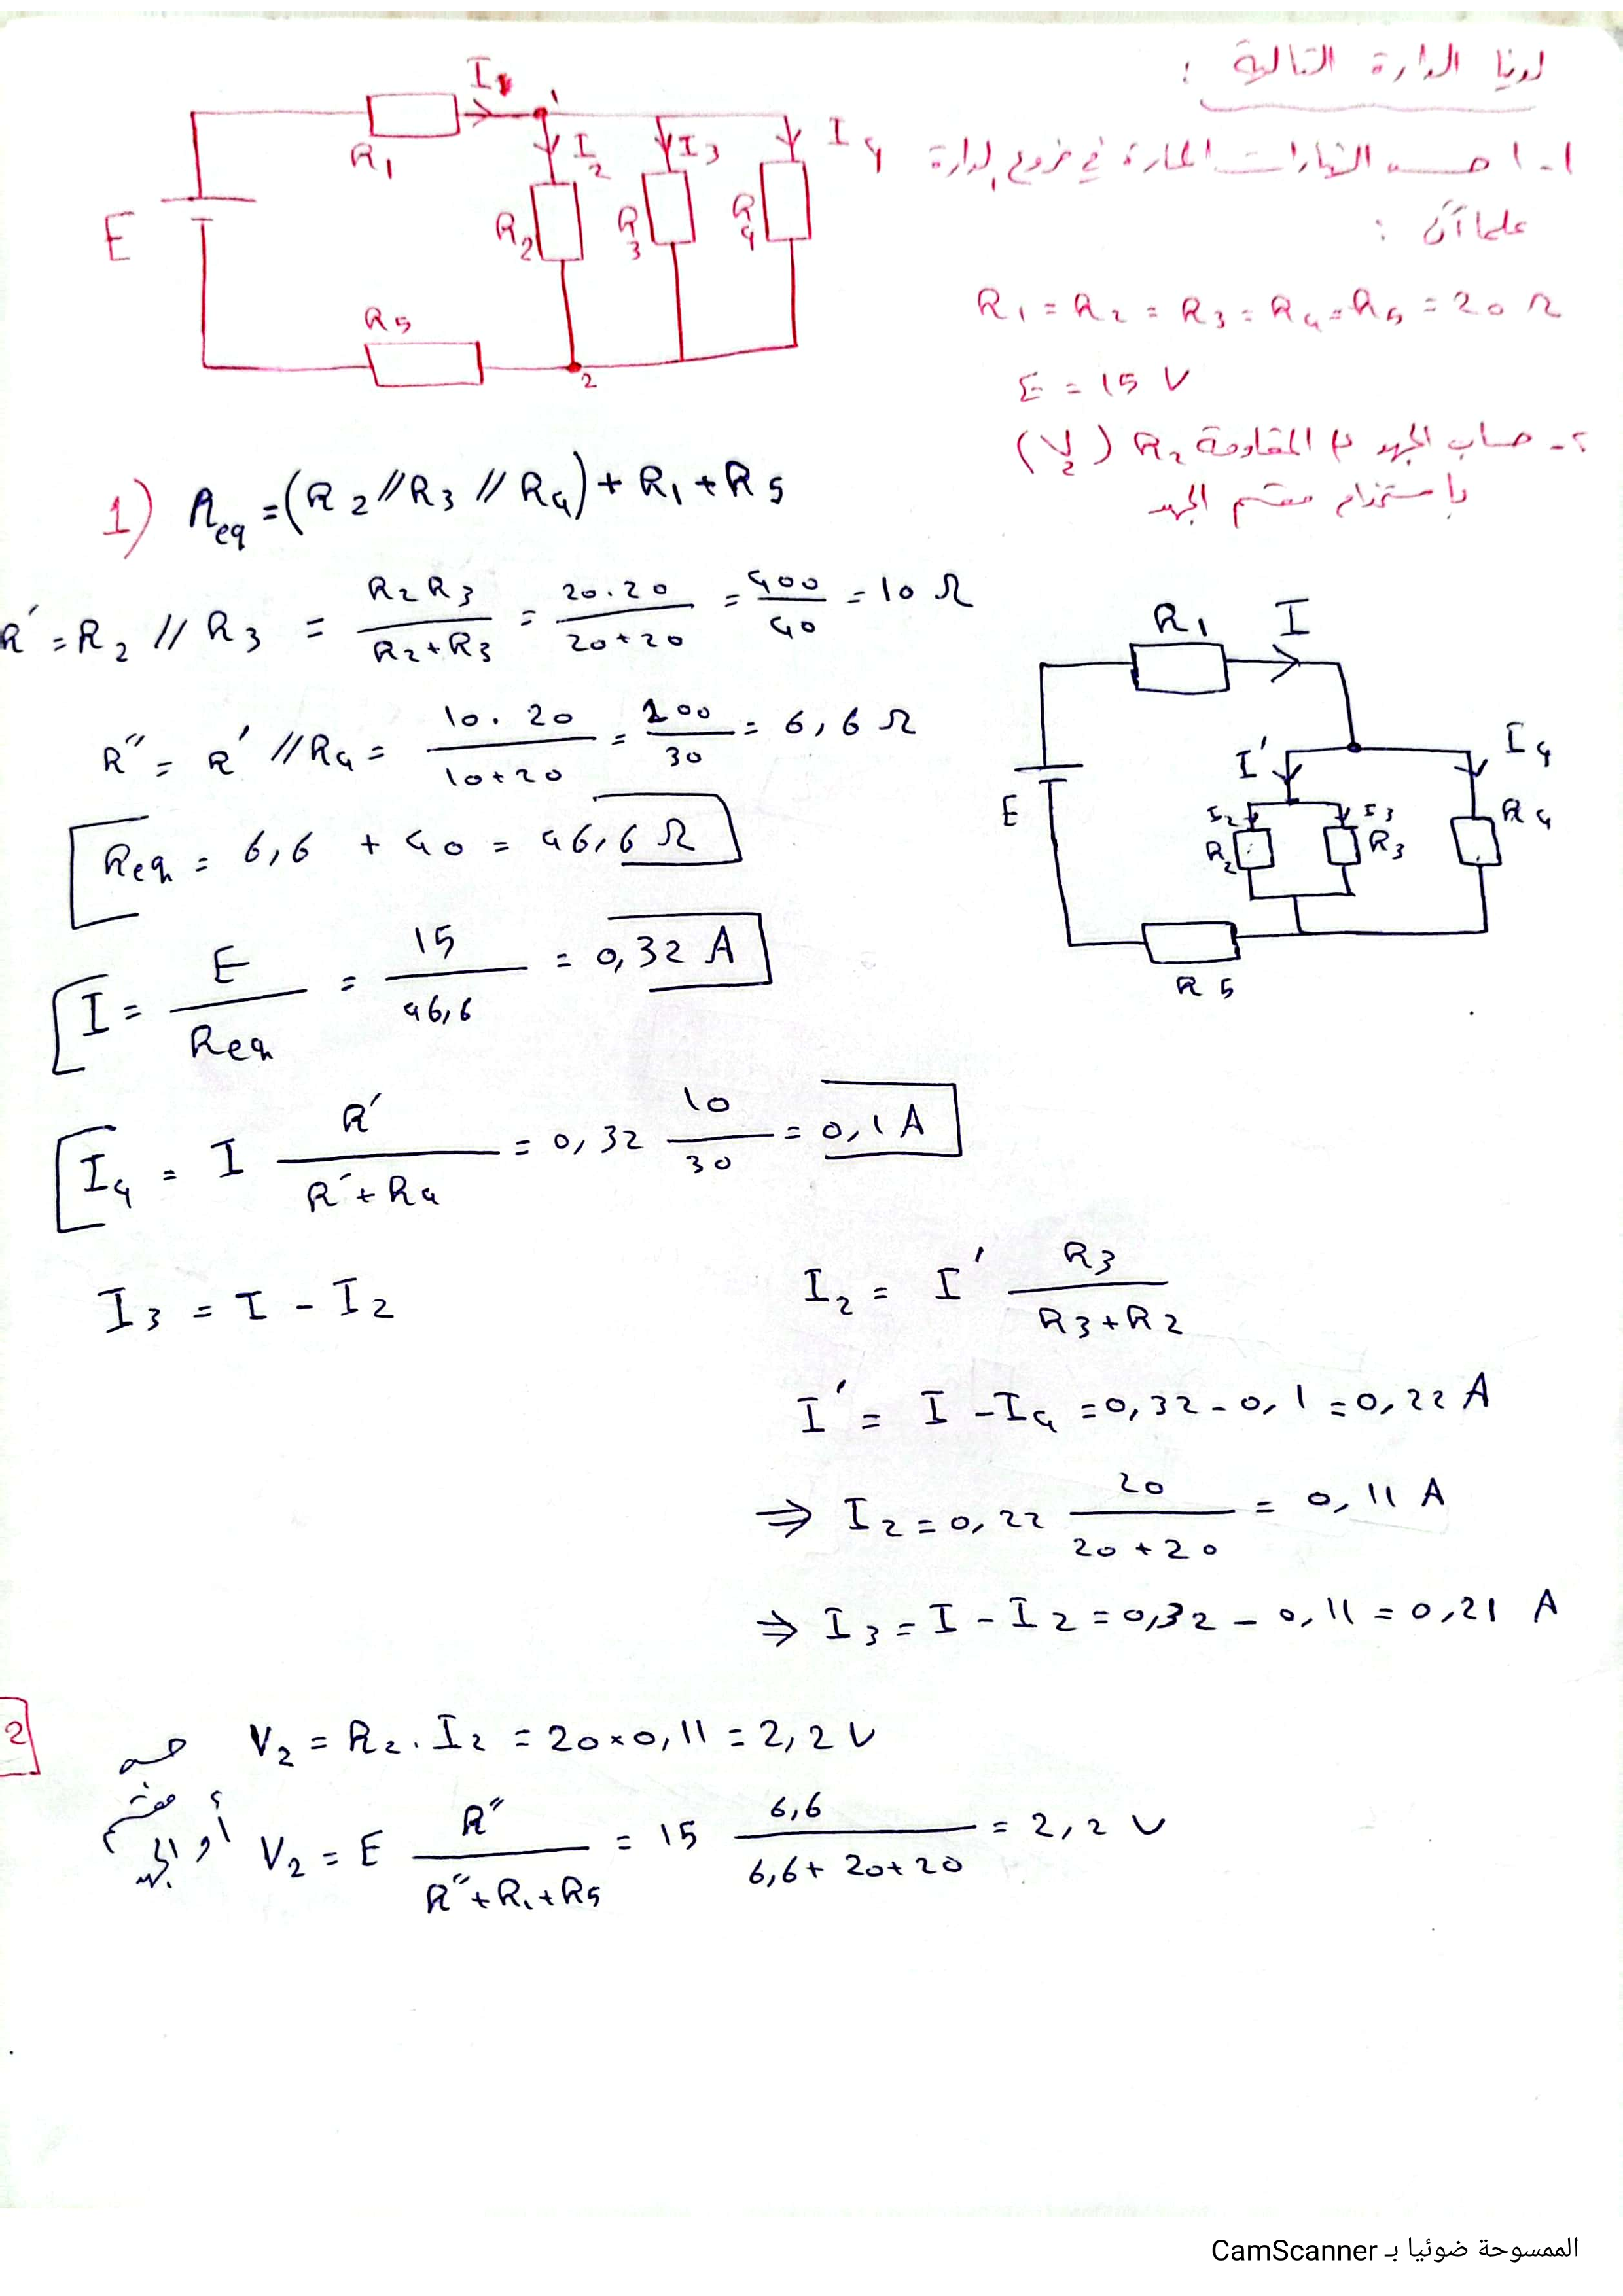 لدينا الدارة التالية :
1-احسب التيارات المارة في فروع الدارة
علما أن :
R1 = R2 = R3 = R4 = R5 = 20 Ω
E = 15 V
2- حساب الجهد المقاومة R2 (V2)
باستخدام مقسم الجهد
I1
R1
I2
I3
I4
E
R2
R3
R4
R5
1
2
1) Req = (R2 // R3 // R4) + R1 + R5
R' = R2 // R3 = R2 R3 / R2 + R3 = 20.20 / 20+20 = 400 / 40 = 10 Ω
R'' = R' // R4 = 10.20 / 10+20 = 200 / 30 = 6,6 Ω
Req = 6,6 + 40 = 46,6 Ω
I = E / Req = 15 / 46,6 = 0,32 A
I4 = I R' / R'+R4 = 0,32 10 / 30 = 0,1 A
R1 I
I' I4
E
I2 I3
R2 R3 R4
R5
I3 = I - I2
I2 = I' R3 / R3+R2
I' = I - I4 = 0,32 - 0,1 = 0,22 A
⇒ I2 = 0,22 20 / 20+20 = 0,11 A
⇒ I3 = I - I2 = 0,32 - 0,11 = 0,21 A
2
V2 = R2 . I2 = 20 × 0,11 = 2,2 V
أو
مقسم
الجهد
V2 = E R'' / R''+R1+R5 = 15 6,6 / 6,6+20+20 = 2,2 V
الممسوحة ضوئيا بـ CamScanner